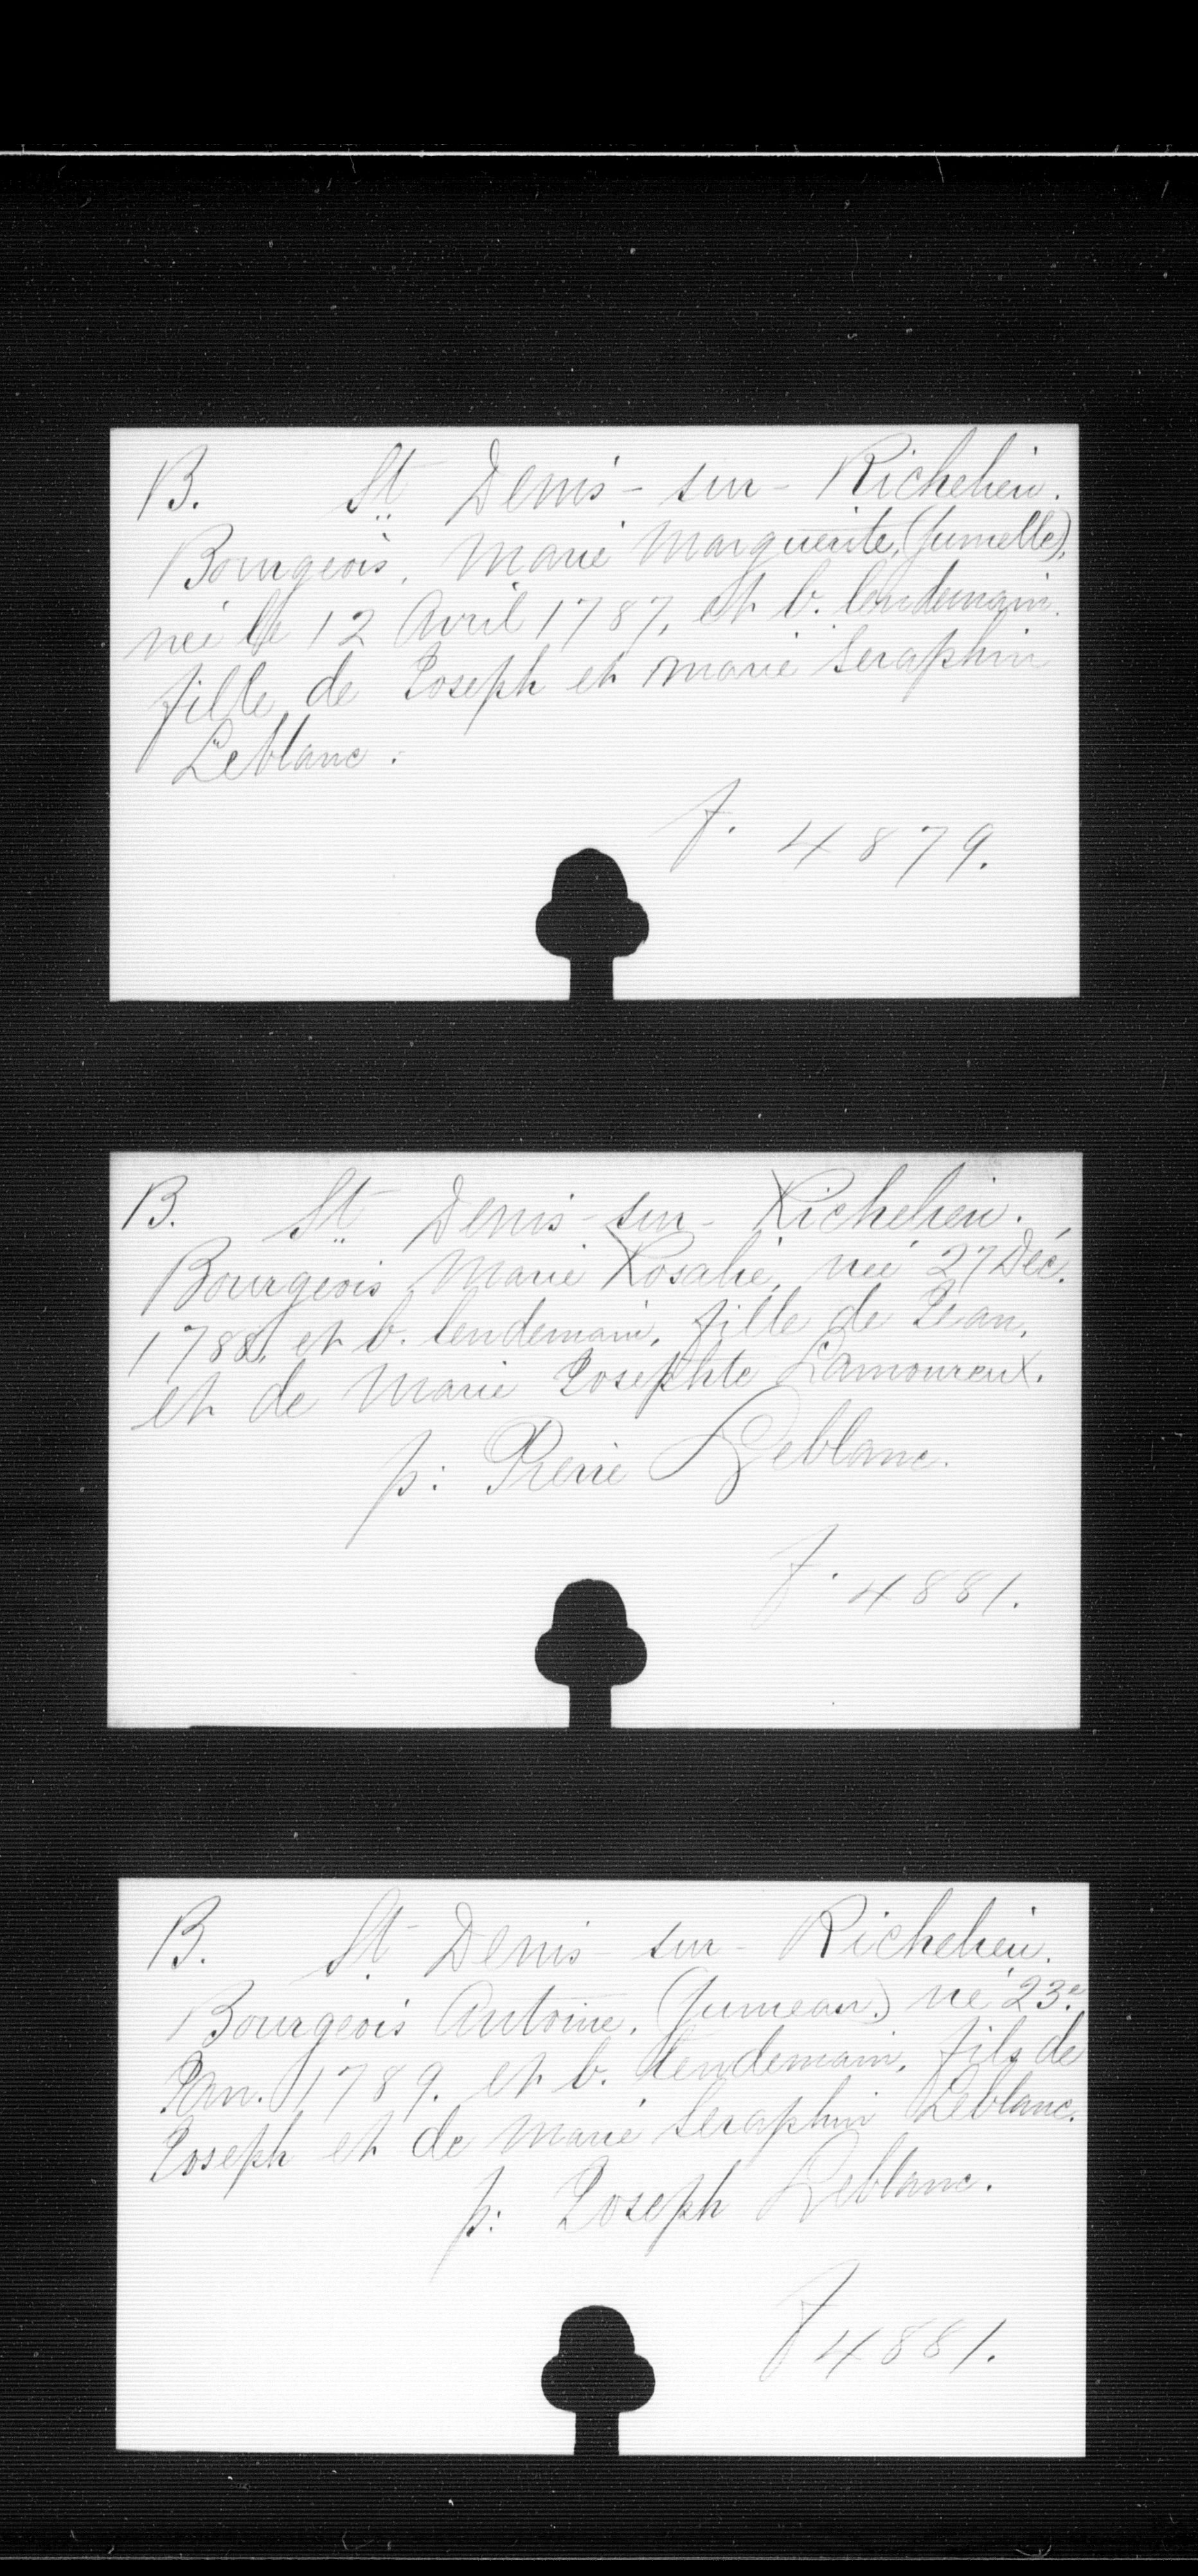 B. St Denis - sur - Richelieu.
Bourgeois, Marie Marguerite, (Jumelle),
née le 12 Avril 1787, et b. lendemain.
fille de Joseph et Marie Seraphin
Leblanc.
f. 4879.
B. St Denis - sur - Richelieu.
Bourgeois Marie Rosalie, née 27 Déc.
1788, et b. lendemain, fille de Jean,
et de Marie Josephte Lamoureux.
p: Pierre Leblanc.
f. 4881.
B. St Denis - sur - Richelieu.
Bourgeois Antoine, (Jumeau) né 23e
Jan. 1789. et b. lendemain, fils de
Joseph et de Marie Seraphin Leblanc.
p: Joseph Leblanc.
f 4881.